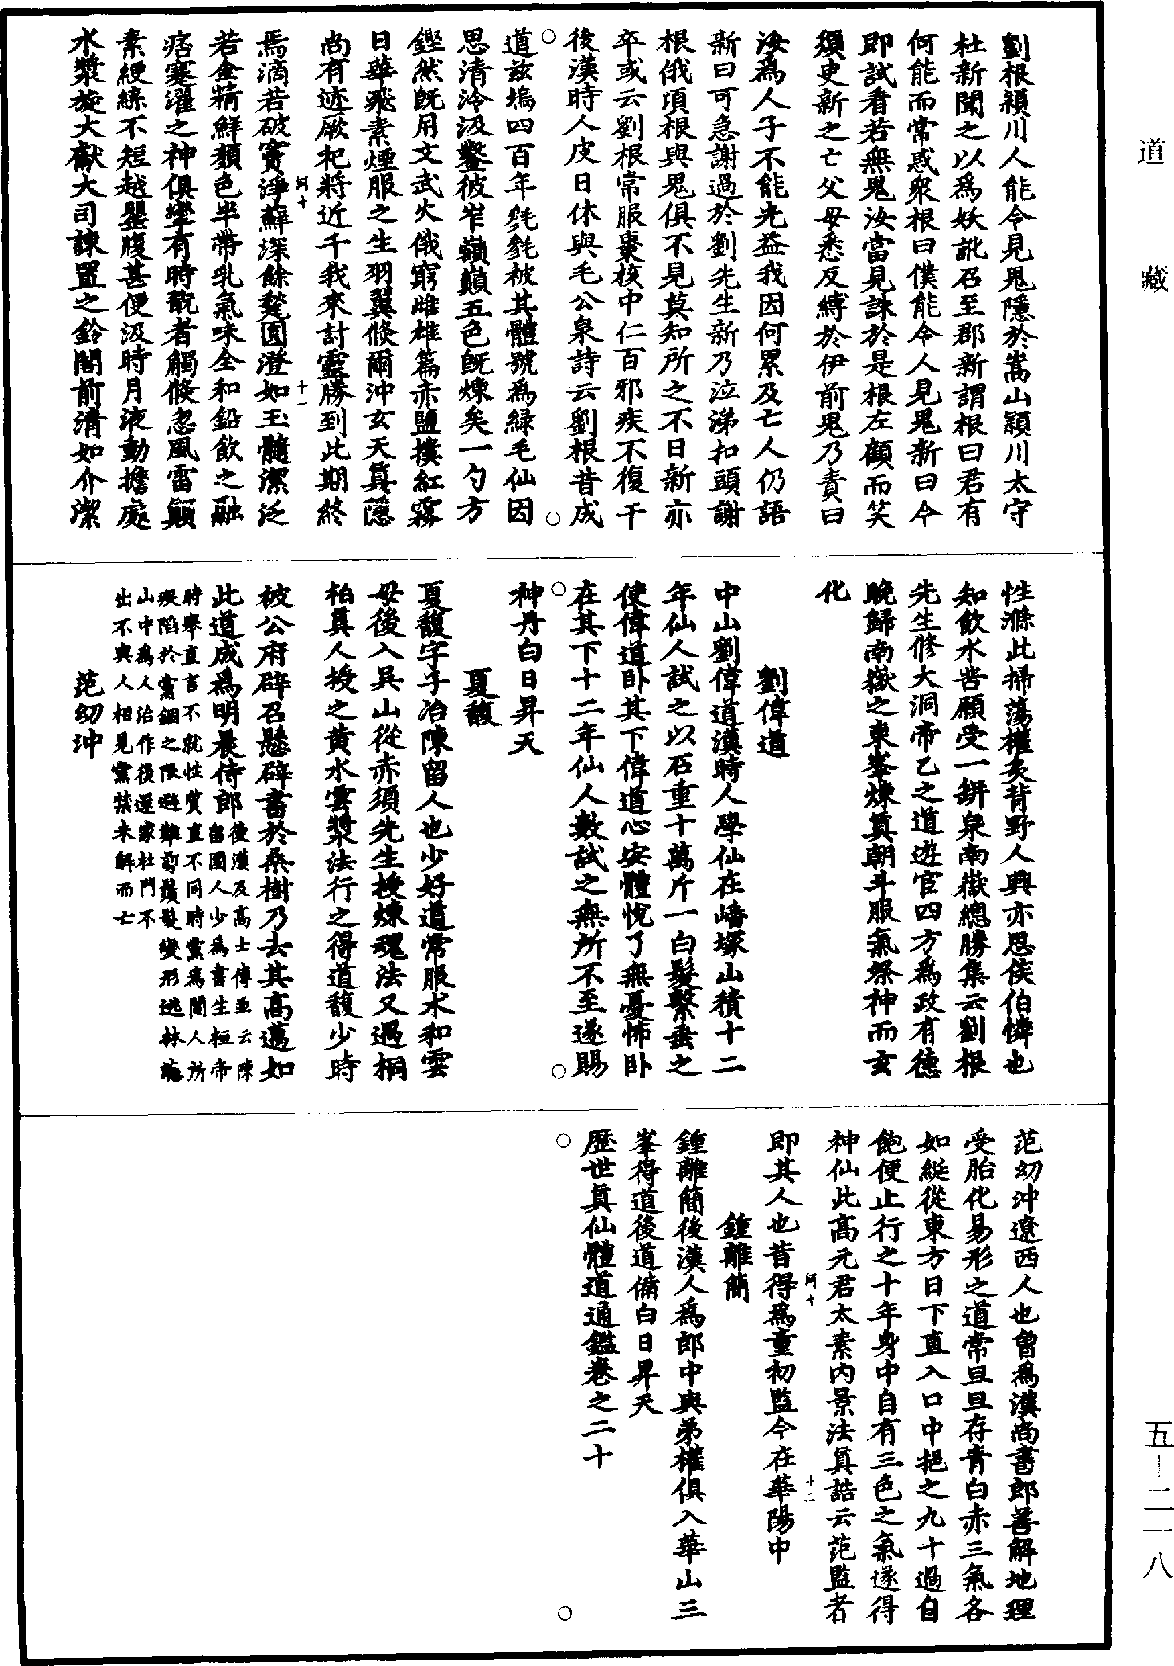 道藏
劉根潁川人能令見鬼隱於嵩山潁川太守
杜新聞之以為妖訛召至郡新謂根曰君有
何能而常惑眾根曰僕能令人見鬼新曰今
即試看若無鬼汝當見誅於是根左顧而笑
須臾新之亡父母悉反縛於伊前鬼乃責曰
汝為人子不能光益我因何累及亡人仍語
新曰可急謝過於劉先生新乃泣涕扣頭謝
根俄頃根與鬼俱不見莫知所之不日新亦
卒或云劉根常服棗核中仁百邪疾不復干
後漢時人皮日休與毛公泉詩云劉根昔成
道茲塢四百年毿毿被其體號為綠毛仙因
思清泠汲鑿彼岝嶺巔五色既煉矣一勺方
鏗然既用文武火俄窮雌雄篇赤鹽撲紅霧
日華飛素煙服之生羽翼倏爾沖玄天真隱
尚有迹厥祀將近千我來討靈勝到此期終
焉滴若破竇淨蘚深餘甃圓澄如玉髓潔泛
若金精鮮顏色半帶乳氣味全和鉛飲之融
痞蹇濯之神俱攣有時翫者觸倏忽風雷顛
素綆絲不短越罌腹甚便汲時月液動擔處
水漿旋大獻大司諫置之鈴閣前清如介潔
性滌此掃蕩權炙背野人興亦思侯伯憐也
知飲水苦願受一缾泉南嶽總勝集云劉根
先生修大洞帝乙之道遊官四方為政有德
晚歸南嶽之東峯煉真朝斗服氣祭神而玄
化
劉偉道
中山劉偉道漢時人學仙在嶓塚山積十二
年仙人試之以石重十萬斤一白髮繫垂之
使偉道臥其下偉道心安體悅了無憂怖臥
在其下十二年仙人數試之無所不至遂賜
神丹白日昇天
夏馥
夏馥字子冶陳留人也少好道常服朮和雲
母後入吳山從赤須先生授煉魂法又遇桐
柏真人授之黃水雲漿法行之得道馥少時
被公府辟召懸辟書於桑樹乃去其高邁如
此道成為明晨侍郎後漢及高士傳並云陳
留圉人少為書生桓帝
時舉直言不就性質直不同時黨為閹人所
疾陷於黨錮之限避難剪鬚髮變形逃林慮
山中為人治作後還家杜門不
出不與人相見黨禁未解而亡
范幼沖
范幼沖遼西人也曾為漢尚書郎善解地理
受胎化易形之道常旦旦存青白赤三氣各
如綖從東方日下直入口中挹之九十過自
飽便止行之十年身中自有三色之氣遂得
神仙此高元君太素內景法真誥云范監者
即其人也昔得為童初監今在華陽中
鍾離簡
鍾離簡後漢人為郎中與弟權俱入華山三
峯得道後道備白日昇天
歷世真仙體道通鑑卷之二十
五—二一八